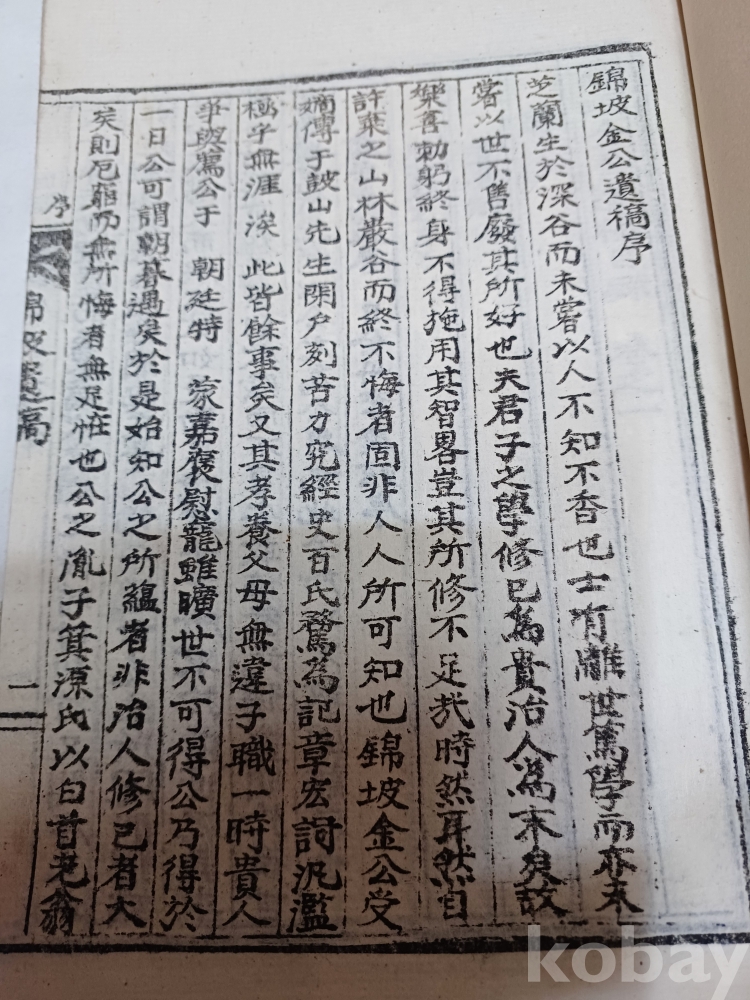 錦坡金公遺稿序
芝蘭生於深谷而未嘗以人不知不香也士有離世篤學而亦未
嘗以世不售廢其所好也夫君子之學修已為貴治人為末矣故
樂善勅躬終身不得施用其智畧豈其所修不足㢤時然耳然自
許棄之山林巖谷而終不悔者固非人人所可知也錦坡金公受
嫡傳于鼓山先生閉户刻苦力究經史百氏騖為記章宏詞汎濫
極乎無涯涘此皆餘事矣又其孝養父母無違子職一時貴人
爭與薦公于 朝廷特 蒙嘉褒慰寵雖曠世不可得公乃得於
一日公可謂朝暮遇矣於是始知公之所蘊者非治人修已者大
矣則厄窮而無所悔者無足恠也公之胤子箕源氏以白首老翁
序
錦坡遺稿
一
kobay